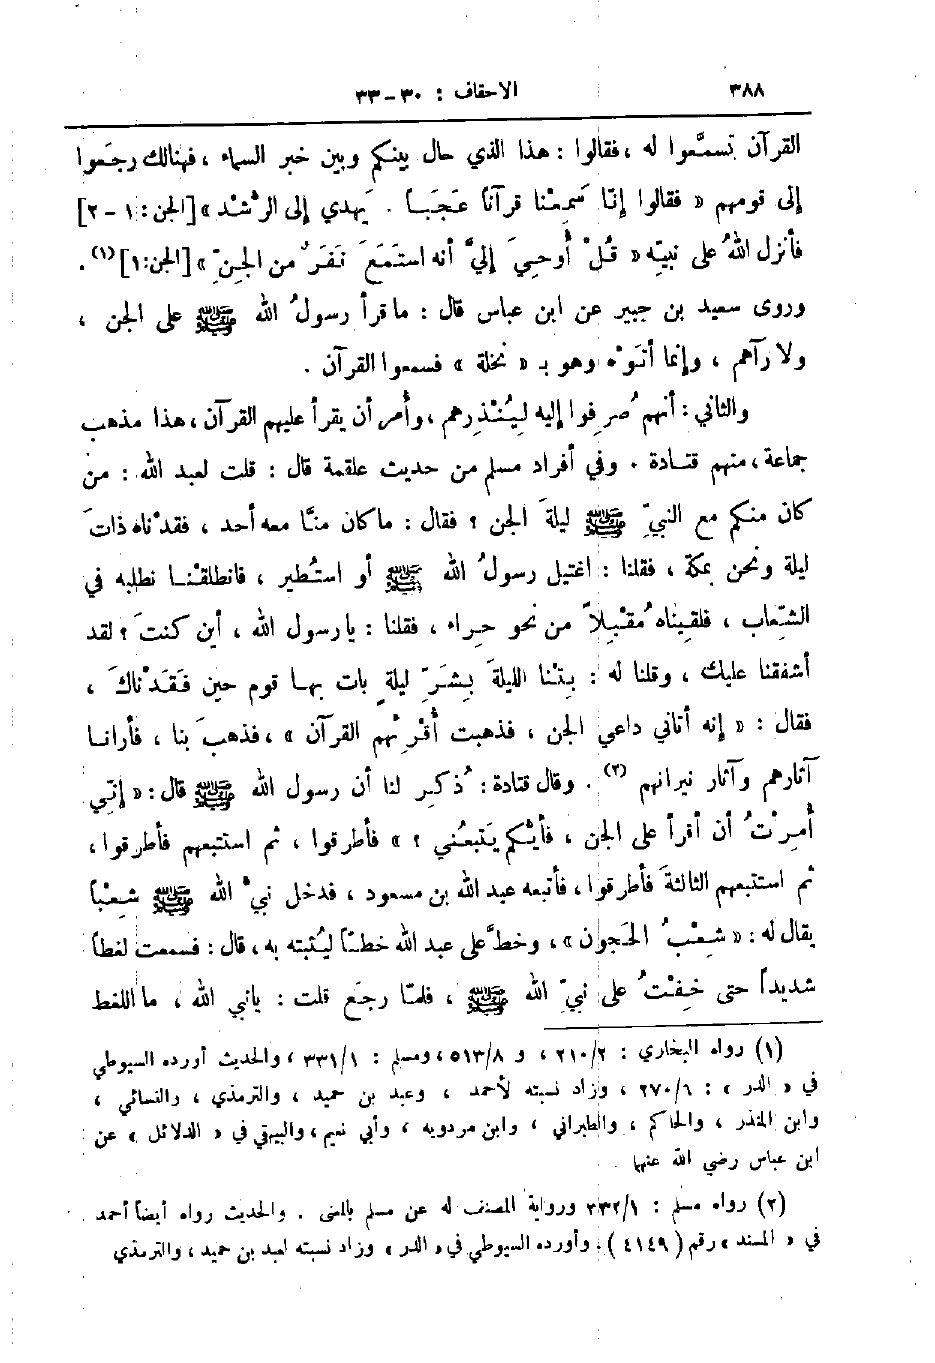 ٣٨٨ الاحقاف : ٣٠ - ٣٣
القرآن تسمَّعوا له ، فقالوا : هذا الذي حال بينكم وبين خبر السماء ، فهنالك رجَعوا
إلى قومهم « فقالوا إنّا سَمِعْنا قرآناً عَجَبـاً . يَهدي إلى الرُّشْد » [الجن : ١ - ٢]
فأنزل اللهُ على نبيِّه « قُلْ أُوحيَ إليَّ أنه استَمَعَ نَفَرٌ من الجنِّ » [الجن:١] (١) .
وروى سعيد بن جبير عن ابن عباس قال : ما قرأ رسولُ الله ﷺ على الجن ،
ولا رآهم ، وإنما أتَوْه وهو بـ « نخلة » فسمعوا القرآن .
والثاني : أنهم صُرِفوا إليه لِيُنْذِرهم ، وأُمر أن يقرأ عليهم القرآن ، هذا مذهب
جماعة ، منهم قتـادة . وفي أفراد مسلم من حديث علقمة قال : قلت لعبد الله : من
كان منكم مع النبيِّ ﷺ ليلةَ الجن ؟ فقال : ماكان منَّا معه أحد ، فقدْناه ذاتَ
ليلة ونحن بمكة ، فقلنا : اغتيل رسولُ الله ﷺ أو استُطير ، فانطلقْنـا نطلبه في
الشِّعاب ، فلقِيناه مُقْبِلاً من نحو حِراء ، فقلنا : يا رسول الله ، أين كنتَ ؟ لقد
أشفقنا عليك ، وقلنا له : بِتْنا الليلةَ بِشَرِّ ليلةٍ بات بهـا قوم حين فَقَدْناكَ ،
فقال : « إنه أتاني داعي الجن ، فذهبت أُقْرِئُهم القرآن » ، فذهبَ بنا ، فأرانـا
آثارهم وآثار نيرانهم (٢) . وقال قتادة : ذُكِر لنا أن رسول الله ﷺ قال : « إنِّي
أُمِرْتُ أن أقرأ على الجن ، فأيُّكم يَتبعُني ؟ » فأطرقوا ، ثم استتبعهم فأطرقوا ،
ثم استتبعهم الثالثةَ فأطرقوا ، فأتبعه عبد الله بن مسعود ، فدخل نبيُّ الله ﷺ شِعْباً
يقال له : « شِعْبُ الحَجون » ، وخطَّ على عبد الله خطّـاً ليُثبته به ، قال : فسمعت لغطاً
شديداً حتى خِفْتُ على نبيِّ الله ﷺ ، فلمّا رجَع قلت : يانبي الله ، ما اللغط
(١) رواه البخاري : ٢١٠/٢ ، و ٥١٣/٨ ، ومسلم : ٣٣١/١ ، والحديث أورده السيوطي
في « الدر » : ٢٧٠/٦ ، وزاد نسبته لأحمد ، وعبد بن حميد ، والترمذي ، والنسائي ،
وابن المنذر ، والحاكم ، والطبراني ، وابن مردويه ، وأبي نعيم ، والبيهقي في « الدلائل » عن
ابن عباس رضي الله عنهما .
(٢) رواه مسلم : ٣٣٢/١ ورواية المصنف له عن مسلم بالمعنى . والحديث رواه أيضاً أحمد
في « المسند » رقم ( ٤١٤٩ ) ، وأورده السيوطي في « الدر » وزاد نسبته لعبد بن حميد ، والترمذي